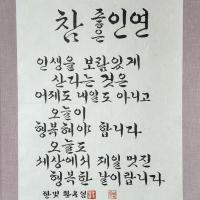 참 좋은 인연
인생을 보람있게
산다는 것은
어제도 내일도 아니고
오늘이
행복해야 합니다
오늘도
세상에서 제일 멋진
행복한 날이랍니다
한빛